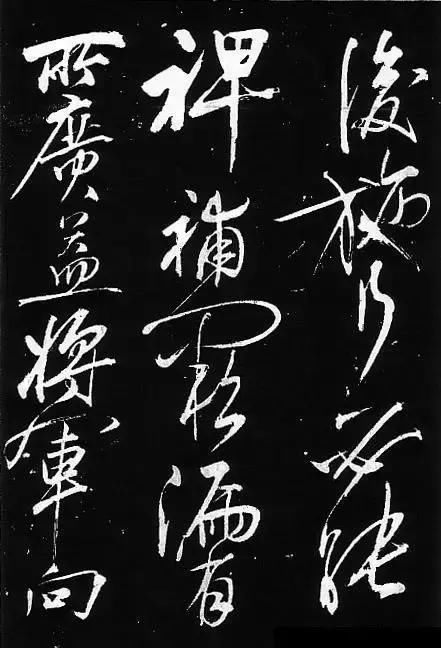 後施行必能
裨補闕漏有
所廣益將軍向